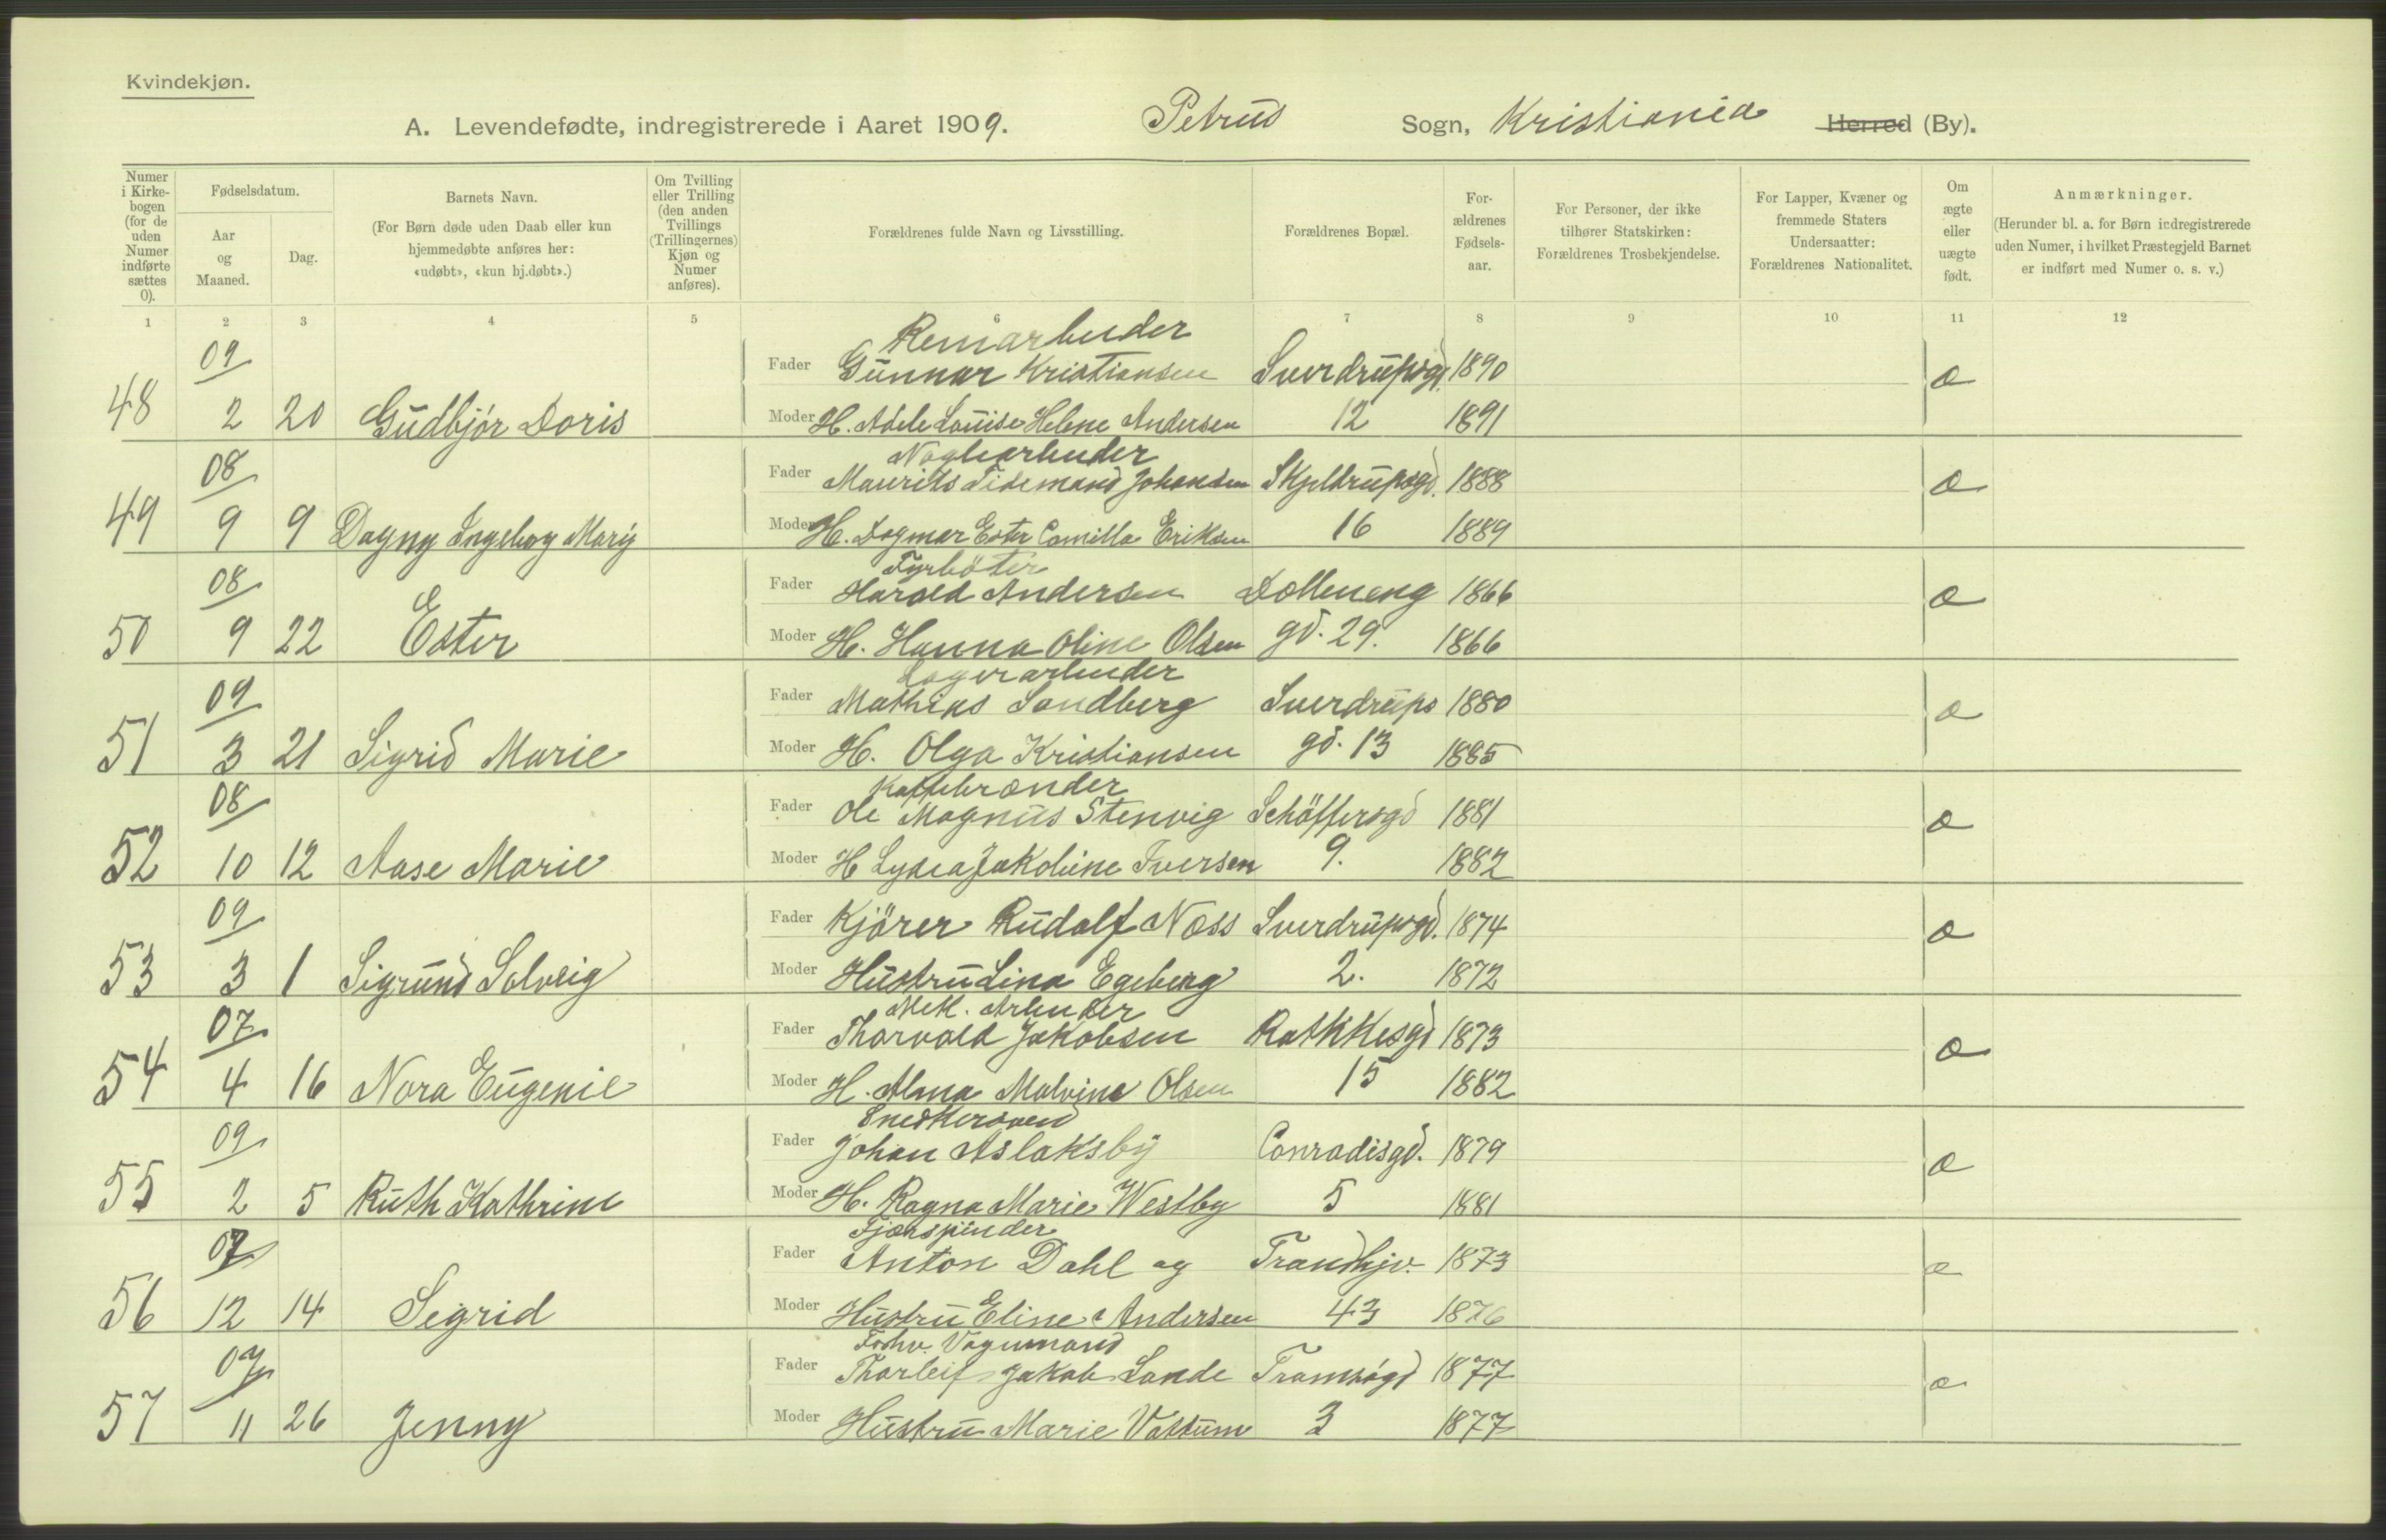 Kvindekjøn.
A. Levendefødte, indregistrerede i Aaret 1909. Petrus Sogn, Kristiania Herred (By).
Numer i Kirkebogen (for de uden Numer indførte sættes 0).
Fødselsdatum.
Aar og Maaned.
Dag.
Barnets Navn.
(For Børn døde uden Daab eller kun hjemmedøbte anføres her: «udøbt», «kun hj.døbt».)
Om Tvilling eller Trilling (den anden Tvillings (Trillingernes) Kjøn og Numer anføres).
Forældrenes fulde Navn og Livsstilling.
Forældrenes Bopæl.
Forældrenes Fødselsaar.
For Personer, der ikke tilhører Statskirken: Forældrenes Trosbekjendelse.
For Lapper, Kvæner og fremmede Staters Undersaatter: Forældrenes Nationalitet.
Om ægte eller uægte født.
Anmærkninger.
(Herunder bl. a. for Børn indregistrerede uden Numer, i hvilket Præstegjeld Barnet er indført med Numer o. s. v.)
1 2 3 4 5 6 7 8 9 10 11 12
09 Remarbeider
Fader Gunnar Kristiansen Sverdrupsgd. 1890 æ
48 2 20 Gudbjór Doris Moder H. Adele Louise Helene Andersen 12 1891
08 Naglearbeider
Fader Maurits Tidemand Johansen Skjeldrupsgd. 1888 æ
49 9 9 Dagny Ingeborg Mary Moder H. Dagmar Ester Camilla Eriksen 16 1889
08 Fyrböter
Fader Harald Andersen Dælleneng 1866 æ
50 9 22 Ester Moder H. Hanna Oline Olsen gd. 29. 1866
09 Lagerarbeider
Fader Mathias Sandberg Sverdrups 1880 æ
51 3 21 Sigrid Marie Moder H. Olga Kristiansen gd. 13 1885
08 Kaffebrænder
Fader Ole Magnus Stenvig Schöffersgd 1881 æ
52 10 12 Aase Marie Moder H Lydia Jakobine Iversen 9. 1882
09 Fader Kjörer Rudolf Næss Sverdrupsgd. 1874 æ
53 3 1 Sigrund Solveig Moder Hustru Lina Egeberg 2. 1872
07 Mek. Arbeider
Fader Thorvald Jakobsen Rathkesgd 1873 æ
54 4 16 Nora Eugenie Moder H. Alma Malvina Olsen 15 1882
09 Snedkersvend
Fader Johan Aslaksby Conradisgd. 1879 æ
55 2 5 Ruth Kathrine Moder H. Ragna Marie Westby 5 1881
07
Fader Anton Dahl og Trondhjv. 1873 æ
56 12 14 Sigrid Moder Hustru Eline Andersen 43 1876
07 Forhv. Vognmand
Fader Thorleif Jakob Sande Tromsögd 1877 æ
57 11 26 Jenny Moder Hustru Marie Vattum 3 1877